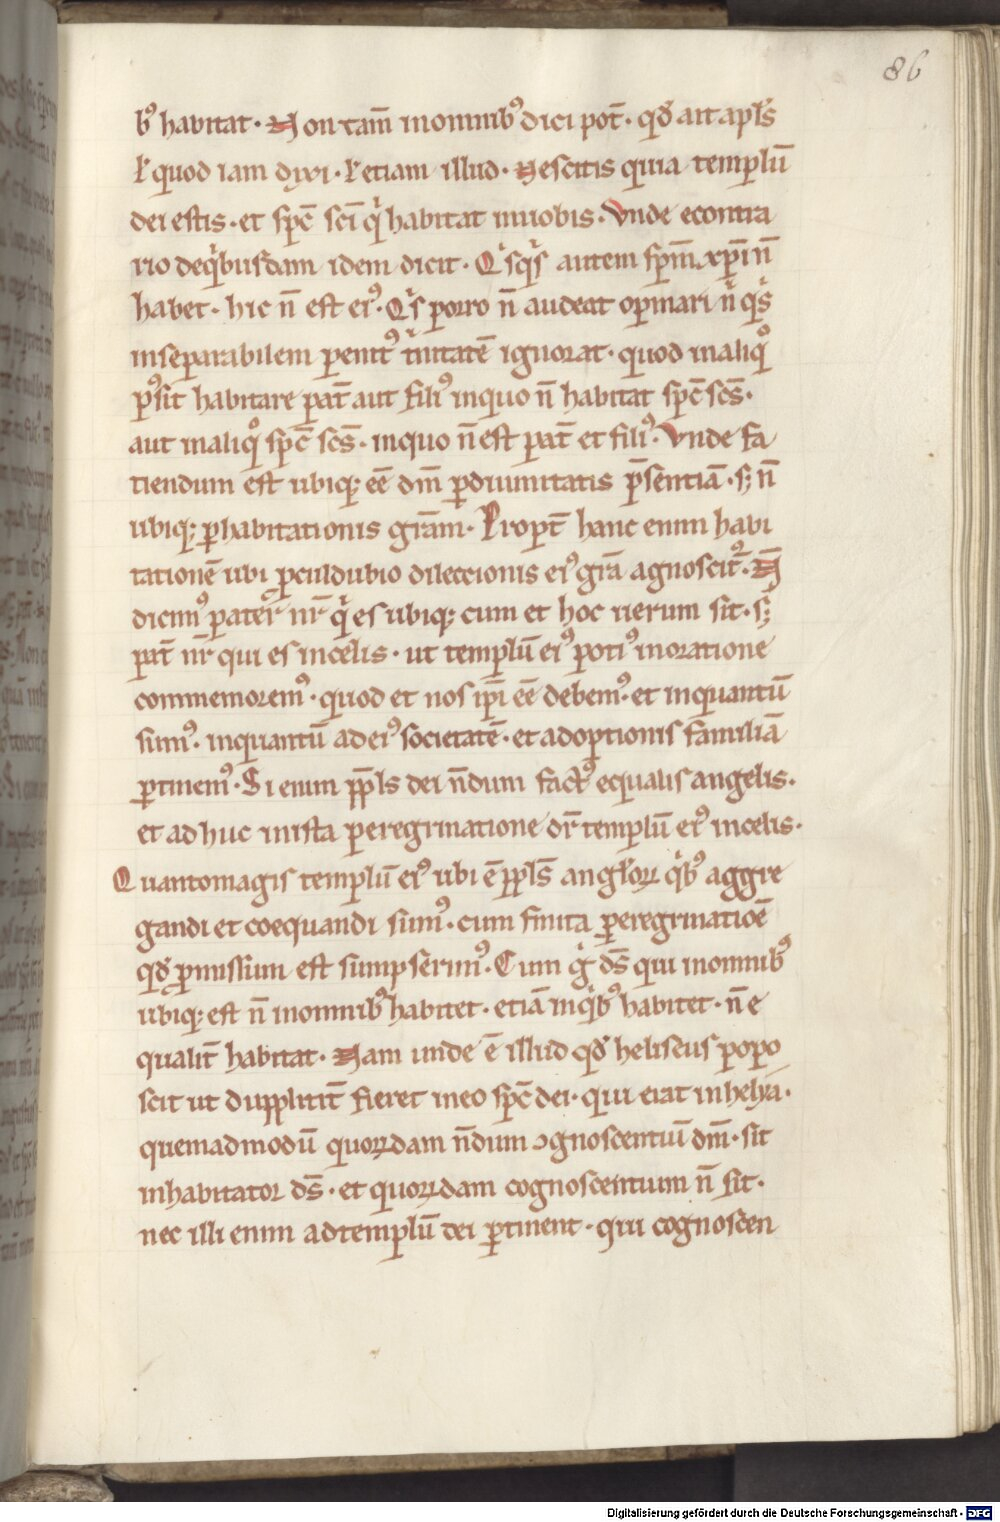 86
bꝰ habitat. Non tam̄ inomnibꝰ dici pot̄. qđ ait apl̄s
ł quod iam dixi. ł etiam illud. Nescitis quia templū
dei estis. et sp̄c sc̄i qͥ habitat inuobis. Vnde econtra
rio deqͥbusdam idem dicit. Qͥsqͥs autem sp̄m xp̄i n̄
habet. hic n̄ est eiꝰ. Qͥs porro n̄ audeat opinari nͥ qͥs
inseparabilem penitꝰ tͥnitatē ignorat. quod inaliqͦ
pꝰsit habitare pat̄ aut filiꝰ inquo n̄ habitat sp̄c sc̄s.
aut inaliqͦ sp̄c sc̄s. inquo n̄ est pat̄ et filiꝰ. Vnde fa
tiendum est ubiqꝫ eē dm̄ ꝑdiuinitatis p̄sentiā. sꝫ n̄
ubiqꝫ ꝑhabitationis grām. Propt̄ hanc enim habi
tationē ubi ꝓculdubio dileccionis eiꝰ grā agnoscit᷑. N̄
dicimꝰ pater nr̄ qͥ es ubiqꝫ cum et hoc uerum sit. sꝫ
pat̄ nr̄ qui es incelis. ut templū eiꝰ potiꝰ inoratione
commemoremꝰ. quod et nos ip̄i eē debemꝰ. et inquantū
sumꝰ. inquantū adeiꝰ societatē. et adoptionis familiā
ꝑtinemꝰ. Si enim pp̄ls dei n̄dum factꝰ equalis angelis.
et adhuc inista peregrinatione dr̄ templū eiꝰ incelis.
Quantomagis templū eiꝰ ubi ē pp̄ls angłoꝝ qͥbꝰ aggre
gandi et coequandi sumꝰ. cum finita peregrinatioē
qđ ꝓmissum est sumpserimꝰ. Cum gͦ ds̄ qui inomnibꝰ
ubiqꝫ est n̄ inomnibꝰ habitet. etiā inqͥbꝰ habitet. n̄ e
qualit̄ habitat. Nam unde ē illud qđ heliseus popo
scit ut dupplitit̄ fieret ineo sp̄c dei. qui erat inhelyā.
quemadmodū quoꝝdam n̄dum ꝯgnoscentiū dm̄. sit
inhabitator ds̄. et quoꝝdam cognoscentium n̄ sit.
nec illi enim adtemplū dei ꝑtinent. qui cognoscen
Digitalisierung gefördert durch die Deutsche Forschungsgemeinschaft - DFG